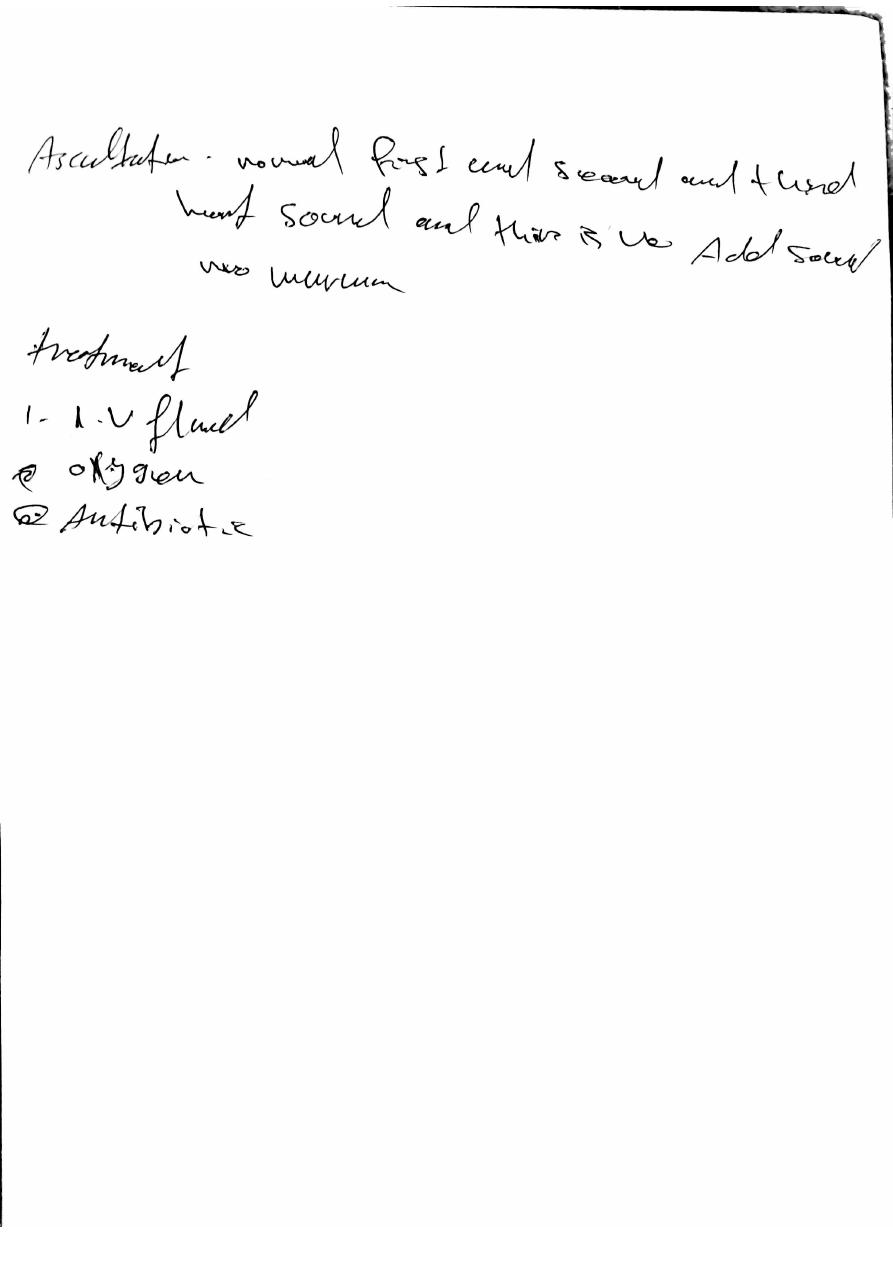 Ascultation. normal first and second and third
heart sound and there is no Add sound
no murmur
treatment
1- I.V fluid
② oxygen
③ Antibiotic